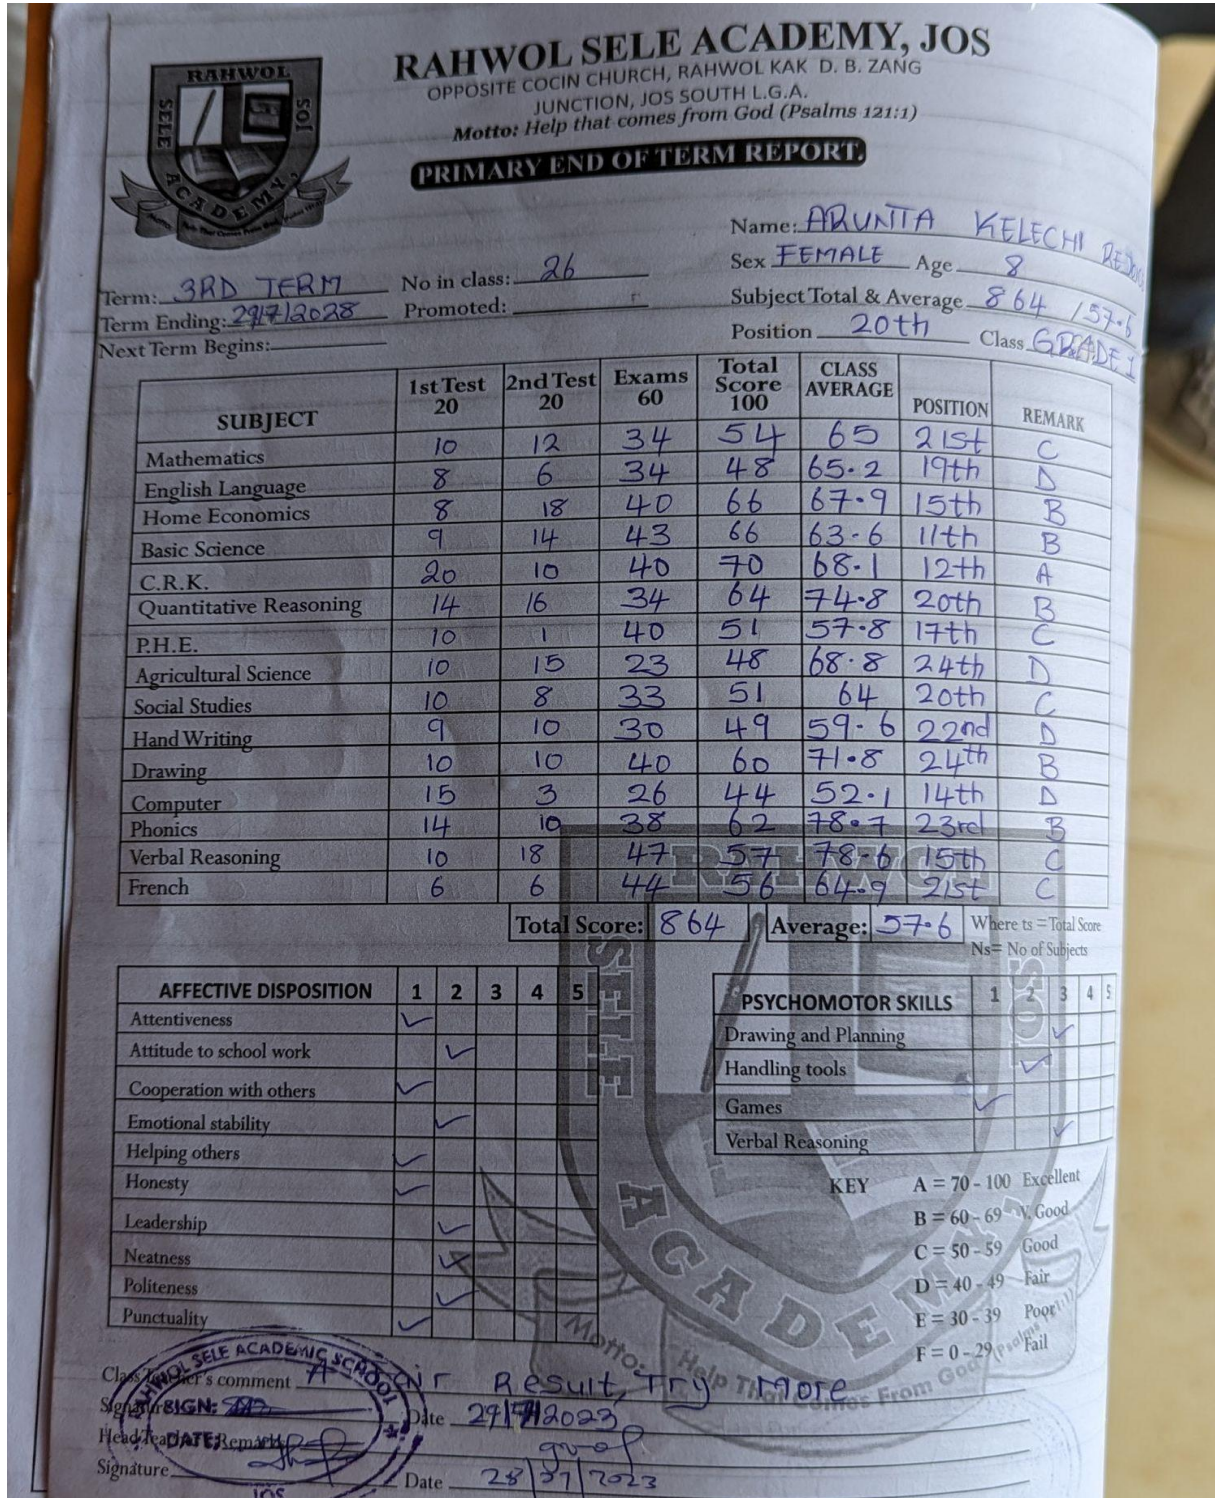 RAHWOL SELE ACADEMY, JOS
OPPOSITE COCIN CHURCH, RAHWOL KAK D. B. ZANG
JUNCTION, JOS SOUTH L.G.A.
Motto: Help that comes from God (Psalms 121:1)
PRIMARY END OF TERM REPORT.
RAHWOL SELE JOS ACADEMY,
Name: ARUNTA KELECHI
Sex FEMALE Age 8
Term: 3RD TERM No in class: 26
Subject Total & Average 864 / 57.6
Term Ending: 29/7/2028 Promoted:
Position 20th Class GRADE 1
Next Term Begins:
SUBJECT 1st Test 20 2nd Test 20 Exams 60 Total Score 100 CLASS AVERAGE POSITION REMARK
Mathematics 10 12 34 54 65 21st C
English Language 8 6 34 48 65.2 19th D
Home Economics 8 18 40 66 67.9 15th B
Basic Science 9 14 43 66 63.6 11th B
C.R.K. 20 10 40 70 68.1 12th A
Quantitative Reasoning 14 16 34 64 74.8 20th B
P.H.E. 10 1 40 51 57.8 17th C
Agricultural Science 10 15 23 48 68.8 24th D
Social Studies 10 8 33 51 64 20th C
Hand Writing 9 10 30 49 59.6 22nd D
Drawing 10 10 40 60 71.8 24th B
Computer 15 3 26 44 52.1 14th D
Phonics 14 10 38 62 78.7 23rd B
Verbal Reasoning 10 18 47 57 78.6 15th C
French 6 6 44 56 64.9 21st C
Total Score: 864 Average: 57.6 Where ts = Total Score
Ns= No of Subjects
AFFECTIVE DISPOSITION 1 2 3 4 5
Attentiveness
Attitude to school work
Cooperation with others
Emotional stability
Helping others
Honesty
Leadership
Neatness
Politeness
Punctuality
PSYCHOMOTOR SKILLS 1 2 3 4 5
Drawing and Planning
Handling tools
Games
Verbal Reasoning
KEY A = 70 - 100 Excellent
B = 60 - 69 V. Good
C = 50 - 59 Good
D = 40 - 49 Fair
E = 30 - 39 Poor
F = 0 - 29 Fail
RAHWOL SELE JOS ACADEMY
Motto: Help That Comes From God (Psalms
Class Teacher's comment A Fair Result, Try More
Signature Date 29/7/2023
Head Teacher Remark good
Signature Date 28/07/2023
RAHWOL SELE ACADEMIC SCHOOL
SIGN:
DATE:
JOS